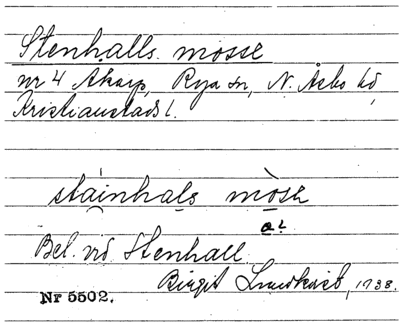 Stenhalls mosse
nr 4 Åkarp, Rya sn, N. Åsbo hd,
Kristianstads l.
stainhals mòse
a?
Bel. vid Stenhall.
Birgit Lundkvist, 1938.
Nr 5502.